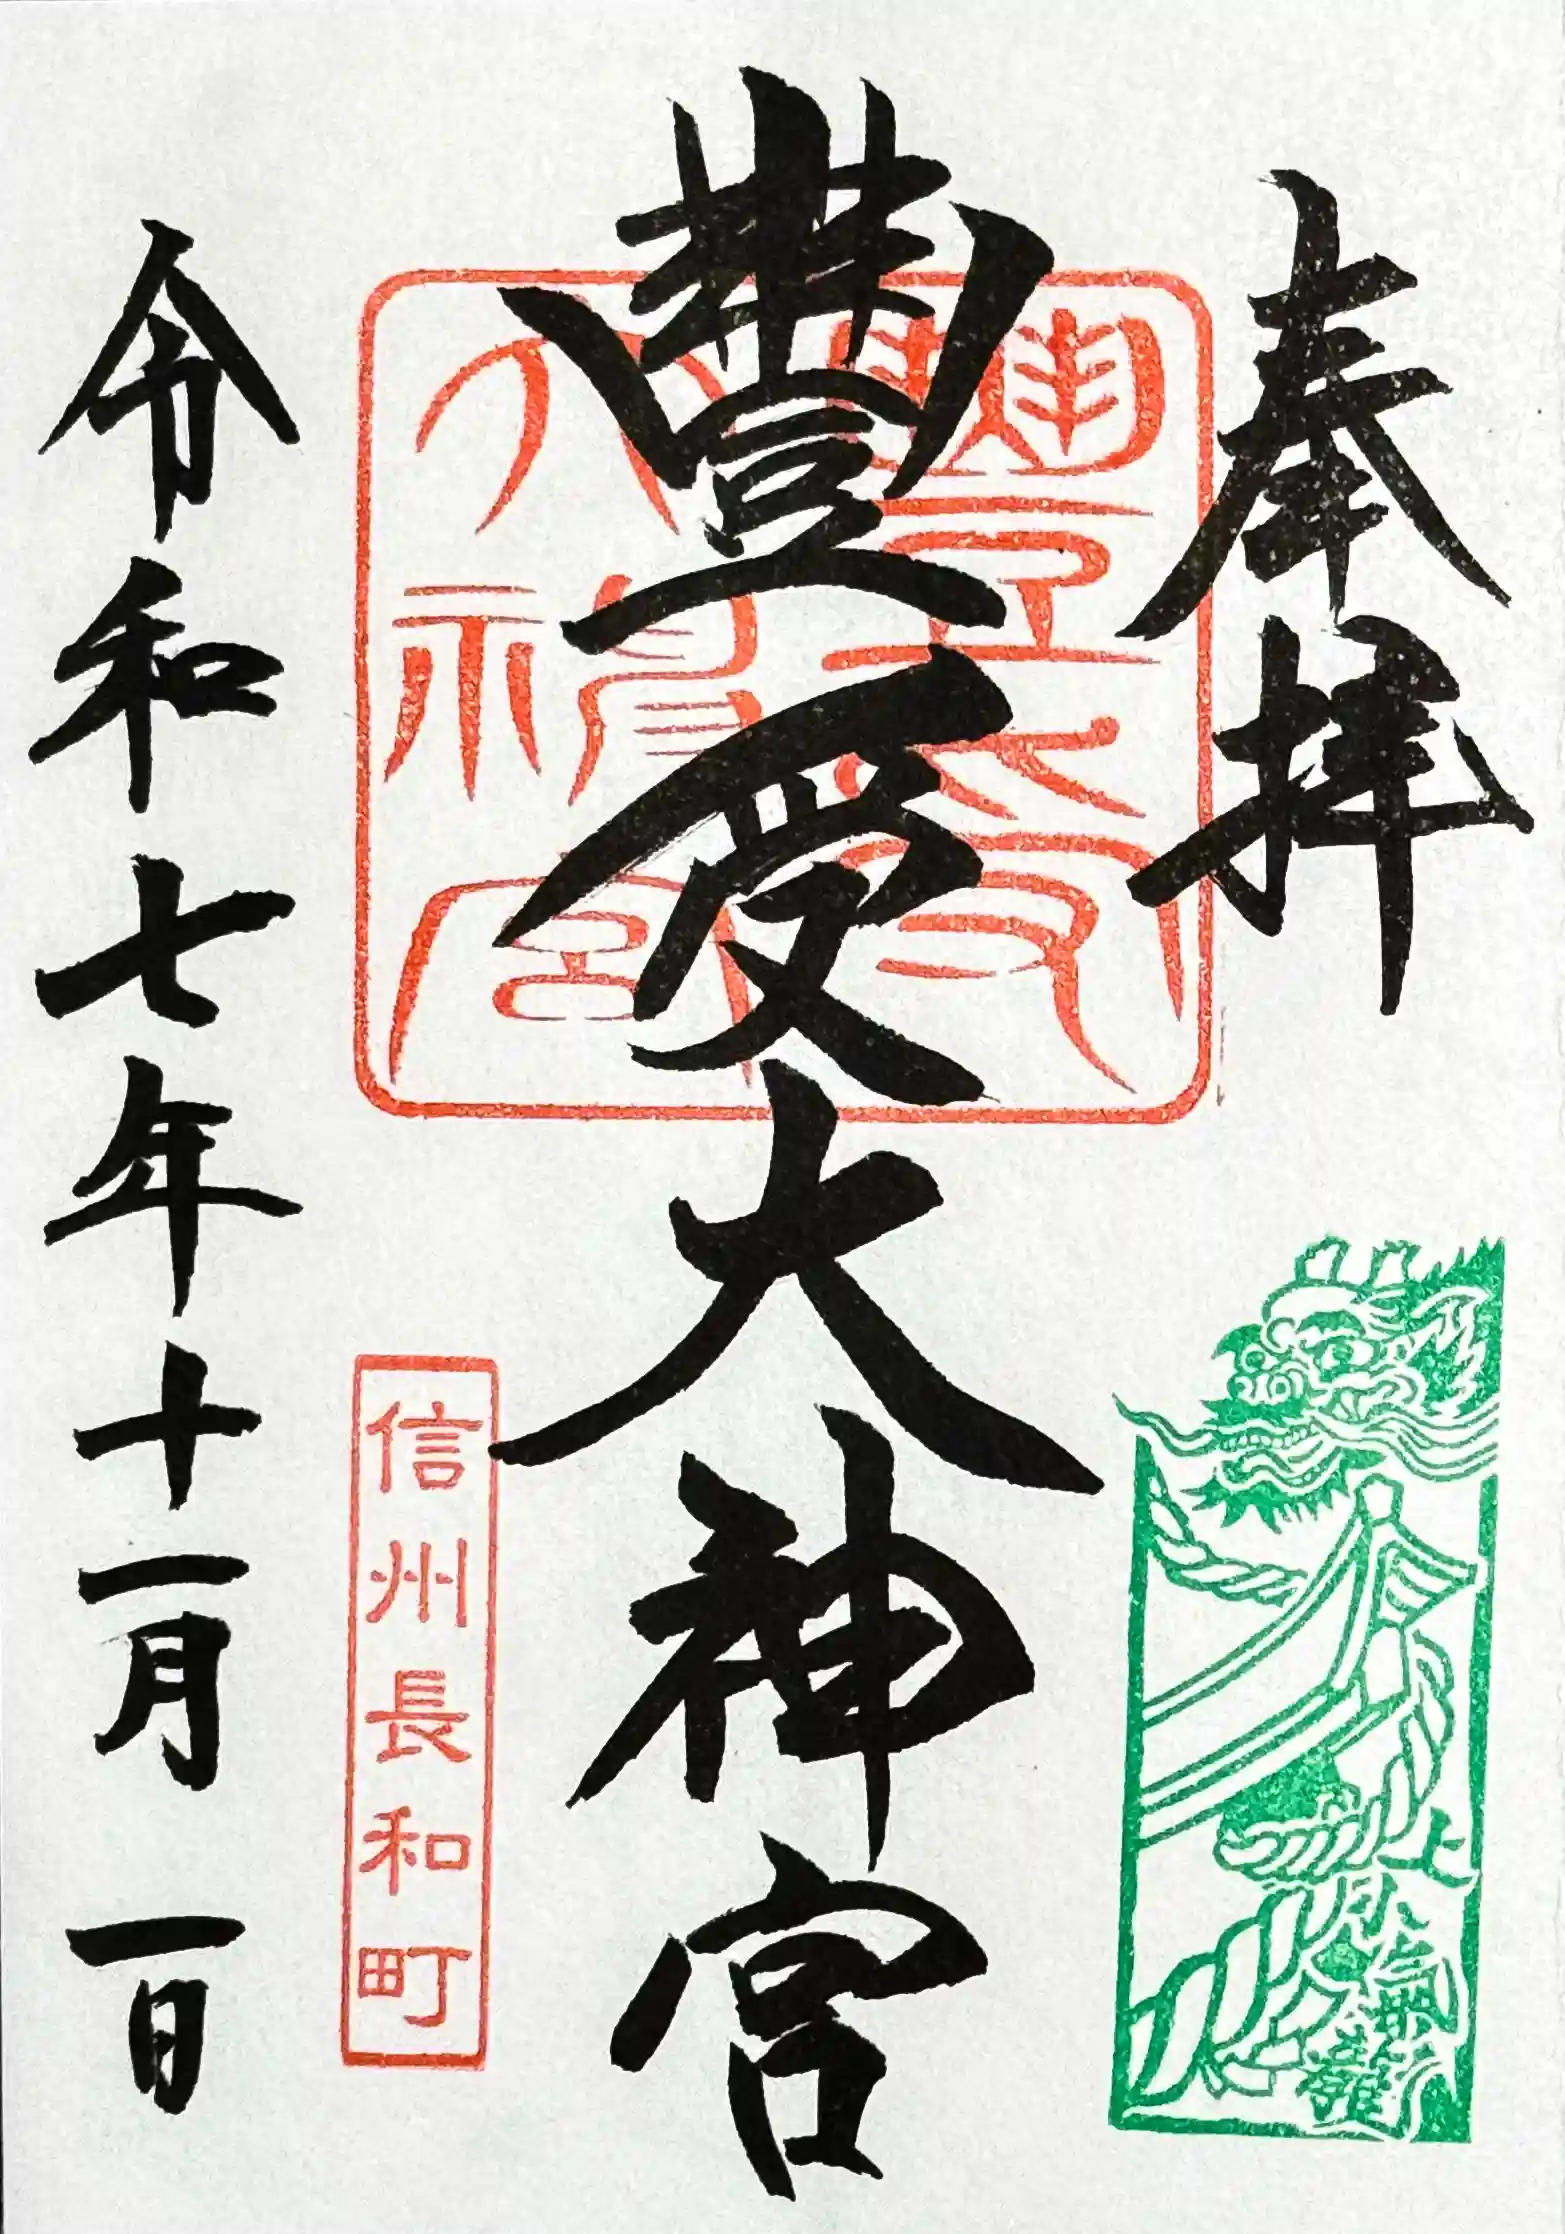 奉拝
豐受大神宮
豐受大神宮
信州長和町
令和七年十一月一日